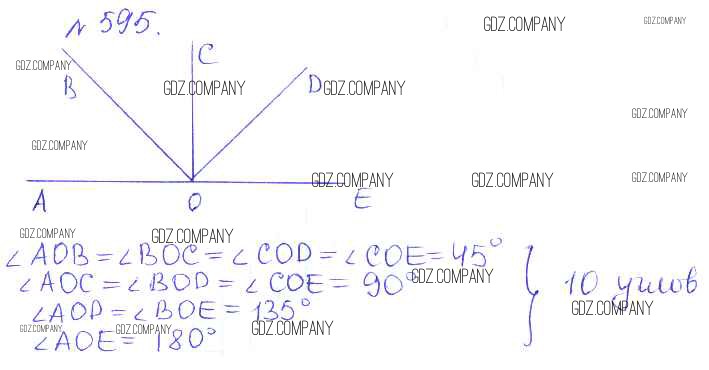 № 595.
GDZ.COMPANY GDZ.COMPANY
C
GDZ.COMPANY
B GDZ.COMPANY D GDZ.COMPANY
GDZ.COMPANY
GDZ.COMPANY
GDZ.COMPANY GDZ.COMPANY GDZ.COMPANY
A O E
GDZ.COMPANY GDZ.COMPANY
∠AOB = ∠BOC = ∠COD = ∠COE = 45°
∠AOC = ∠BOD = ∠COE = 90° GDZ.COMPANY
10 углов
∠AOD = ∠BOE = 135° GDZ.COMPANY
GDZ.COMPANY GDZ.COMPANY GDZ.COMPANY
∠AOE = 180°